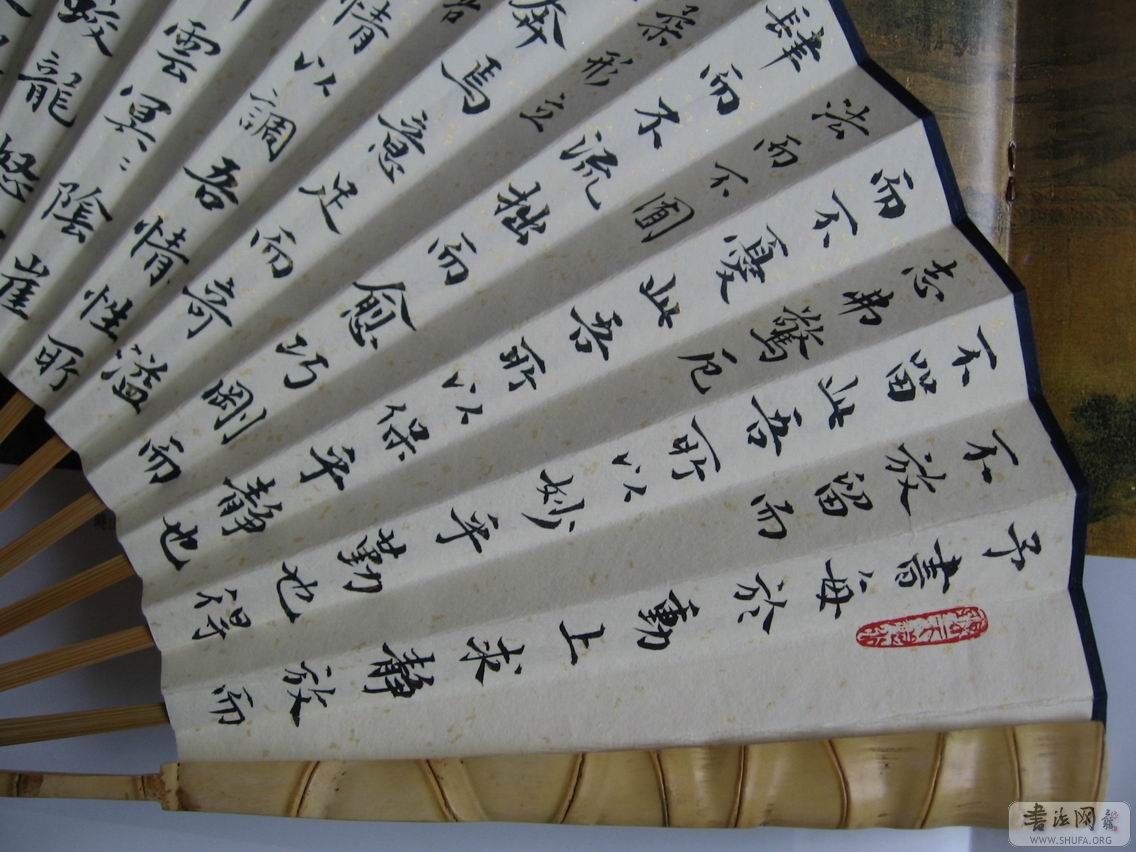 予書每於動上求靜放而
不放留而
不留此吾所以妙乎勤也得
志弗驚厄
而不憂此吾所以保乎靜也
法而不囿
肆而不流拙而愈巧剛而
柔形立
奔焉意足而奇溢
情以調吾情性所
雲冥〻陰崔
蛟龍怒
書法网
WWW.SHUFA.ORG